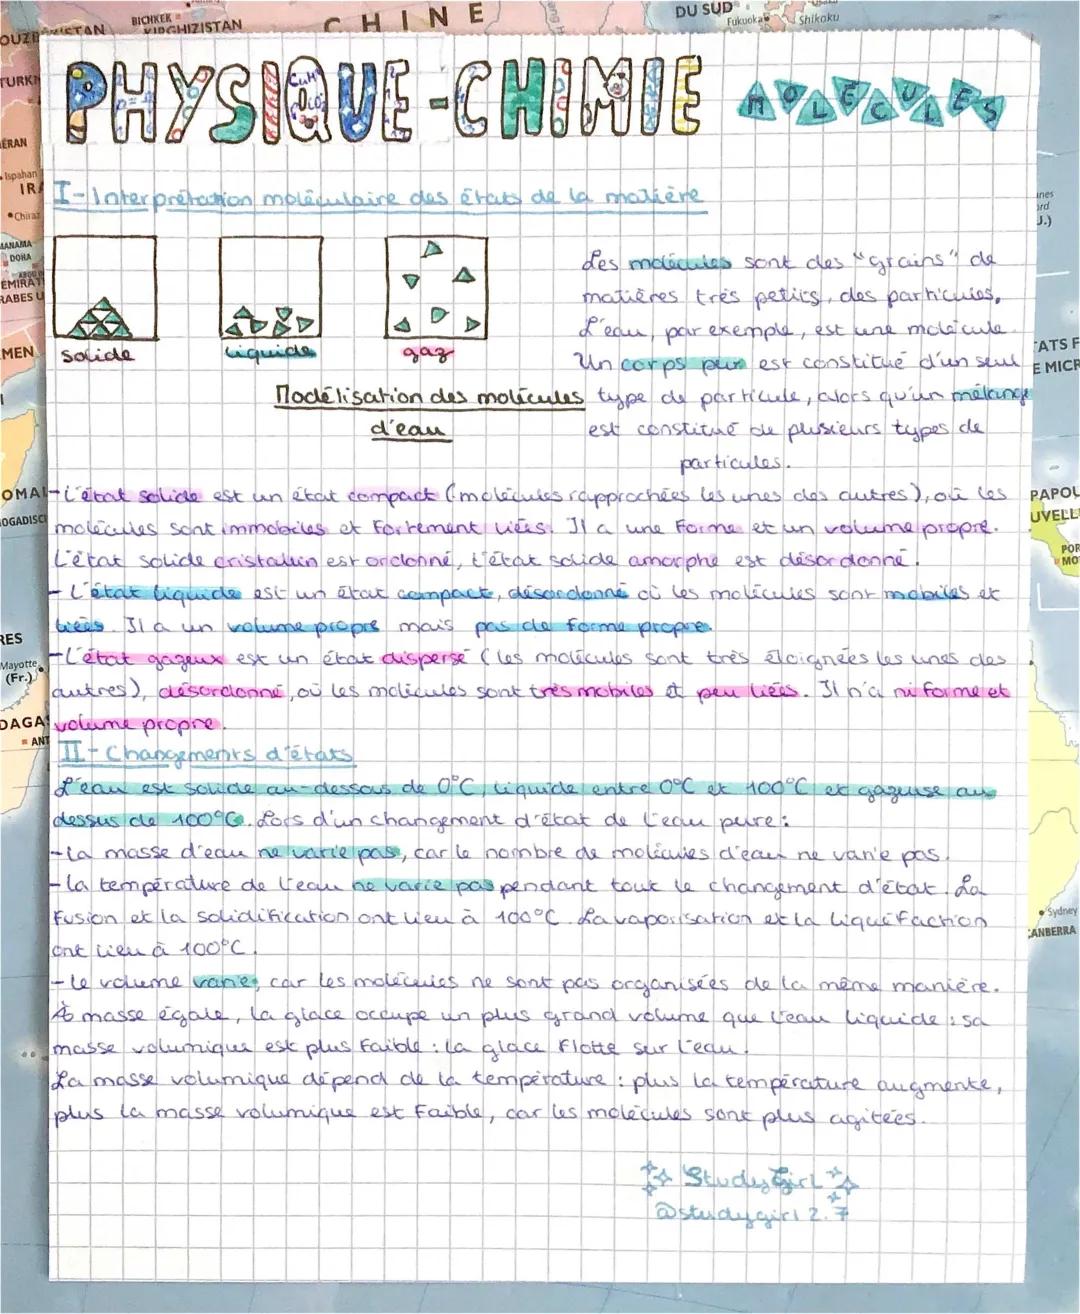 OUZBEKISTAN
BICHKEK
KIRGHIZISTAN
CHINE
DU SUD
Fukuoka
Shikoku
TURKM
PHYSIQUE-CHIMIE MOLÉCULES
ÉRAN
Ispahan
IRA
Chiraz
MANAMA
DOHA
ÉMIRAT
RABES U
MEN
I-Interprétation moléculaire des états de la matière
solide
liquide
gaz
Modélisation des molécules
d'eau
Les molécules sont des "grains" de
matières très petits, des particules,
L'eau, par exemple, est une molécule.
Un corps pur est constitué d'un seul
type de particule, alors qu'un mélange
est constitué de plusieurs types de
particules.
-L'état solide est un état compact (molécules rapprochées les unes des autres), où les
molécules sont immobiles et fortement liées. Il a une forme et un volume propre.
L'état solide cristallin est ordonné, l'état solide amorphe est désordonné.
- L'état liquide est un état compact, désordonné où les molécules sont mobiles et
liées. Il a un volume propre mais pas de forme propre.
-L'état gazeux est un état dispersé (les molécules sont très éloignées les unes des
autres), désordonné, où les molécules sont très mobiles et peu liées. Il n'a ni forme et
volume propre.
II- Changements d'états
L'eau est solide au-dessous de 0°C, liquide entre 0°C et 100°C et gazeuse au
dessus de 100°C. Lors d'un changement d'état de l'eau pure:
-la masse d'eau ne varie pas, car le nombre de molécules d'eau ne varie pas.
-la température de l'eau ne varie pas pendant tout le changement d'état. La
fusion et la solidification ont lieu à 100°C. La vaporisation et la liquéfaction
ont lieu à 100°C.
-le volume varie, car les molécules ne sont pas organisées de la même manière.
À masse égale, la glace occupe un plus grand volume que l'eau liquide : sa
masse volumique est plus faible : la glace flotte sur l'eau.
La masse volumique dépend de la température : plus la température augmente,
plus la masse volumique est faible, car les molécules sont plus agitées.
StudyGirl
@studygirl2.7
OMAL
OGADISCI
RES
Mayotte
(Fr.)
DAGA
ANT
ATS F
E MICR
PAPOU
UVELL
POR
MO
Sydney
CANBERRA